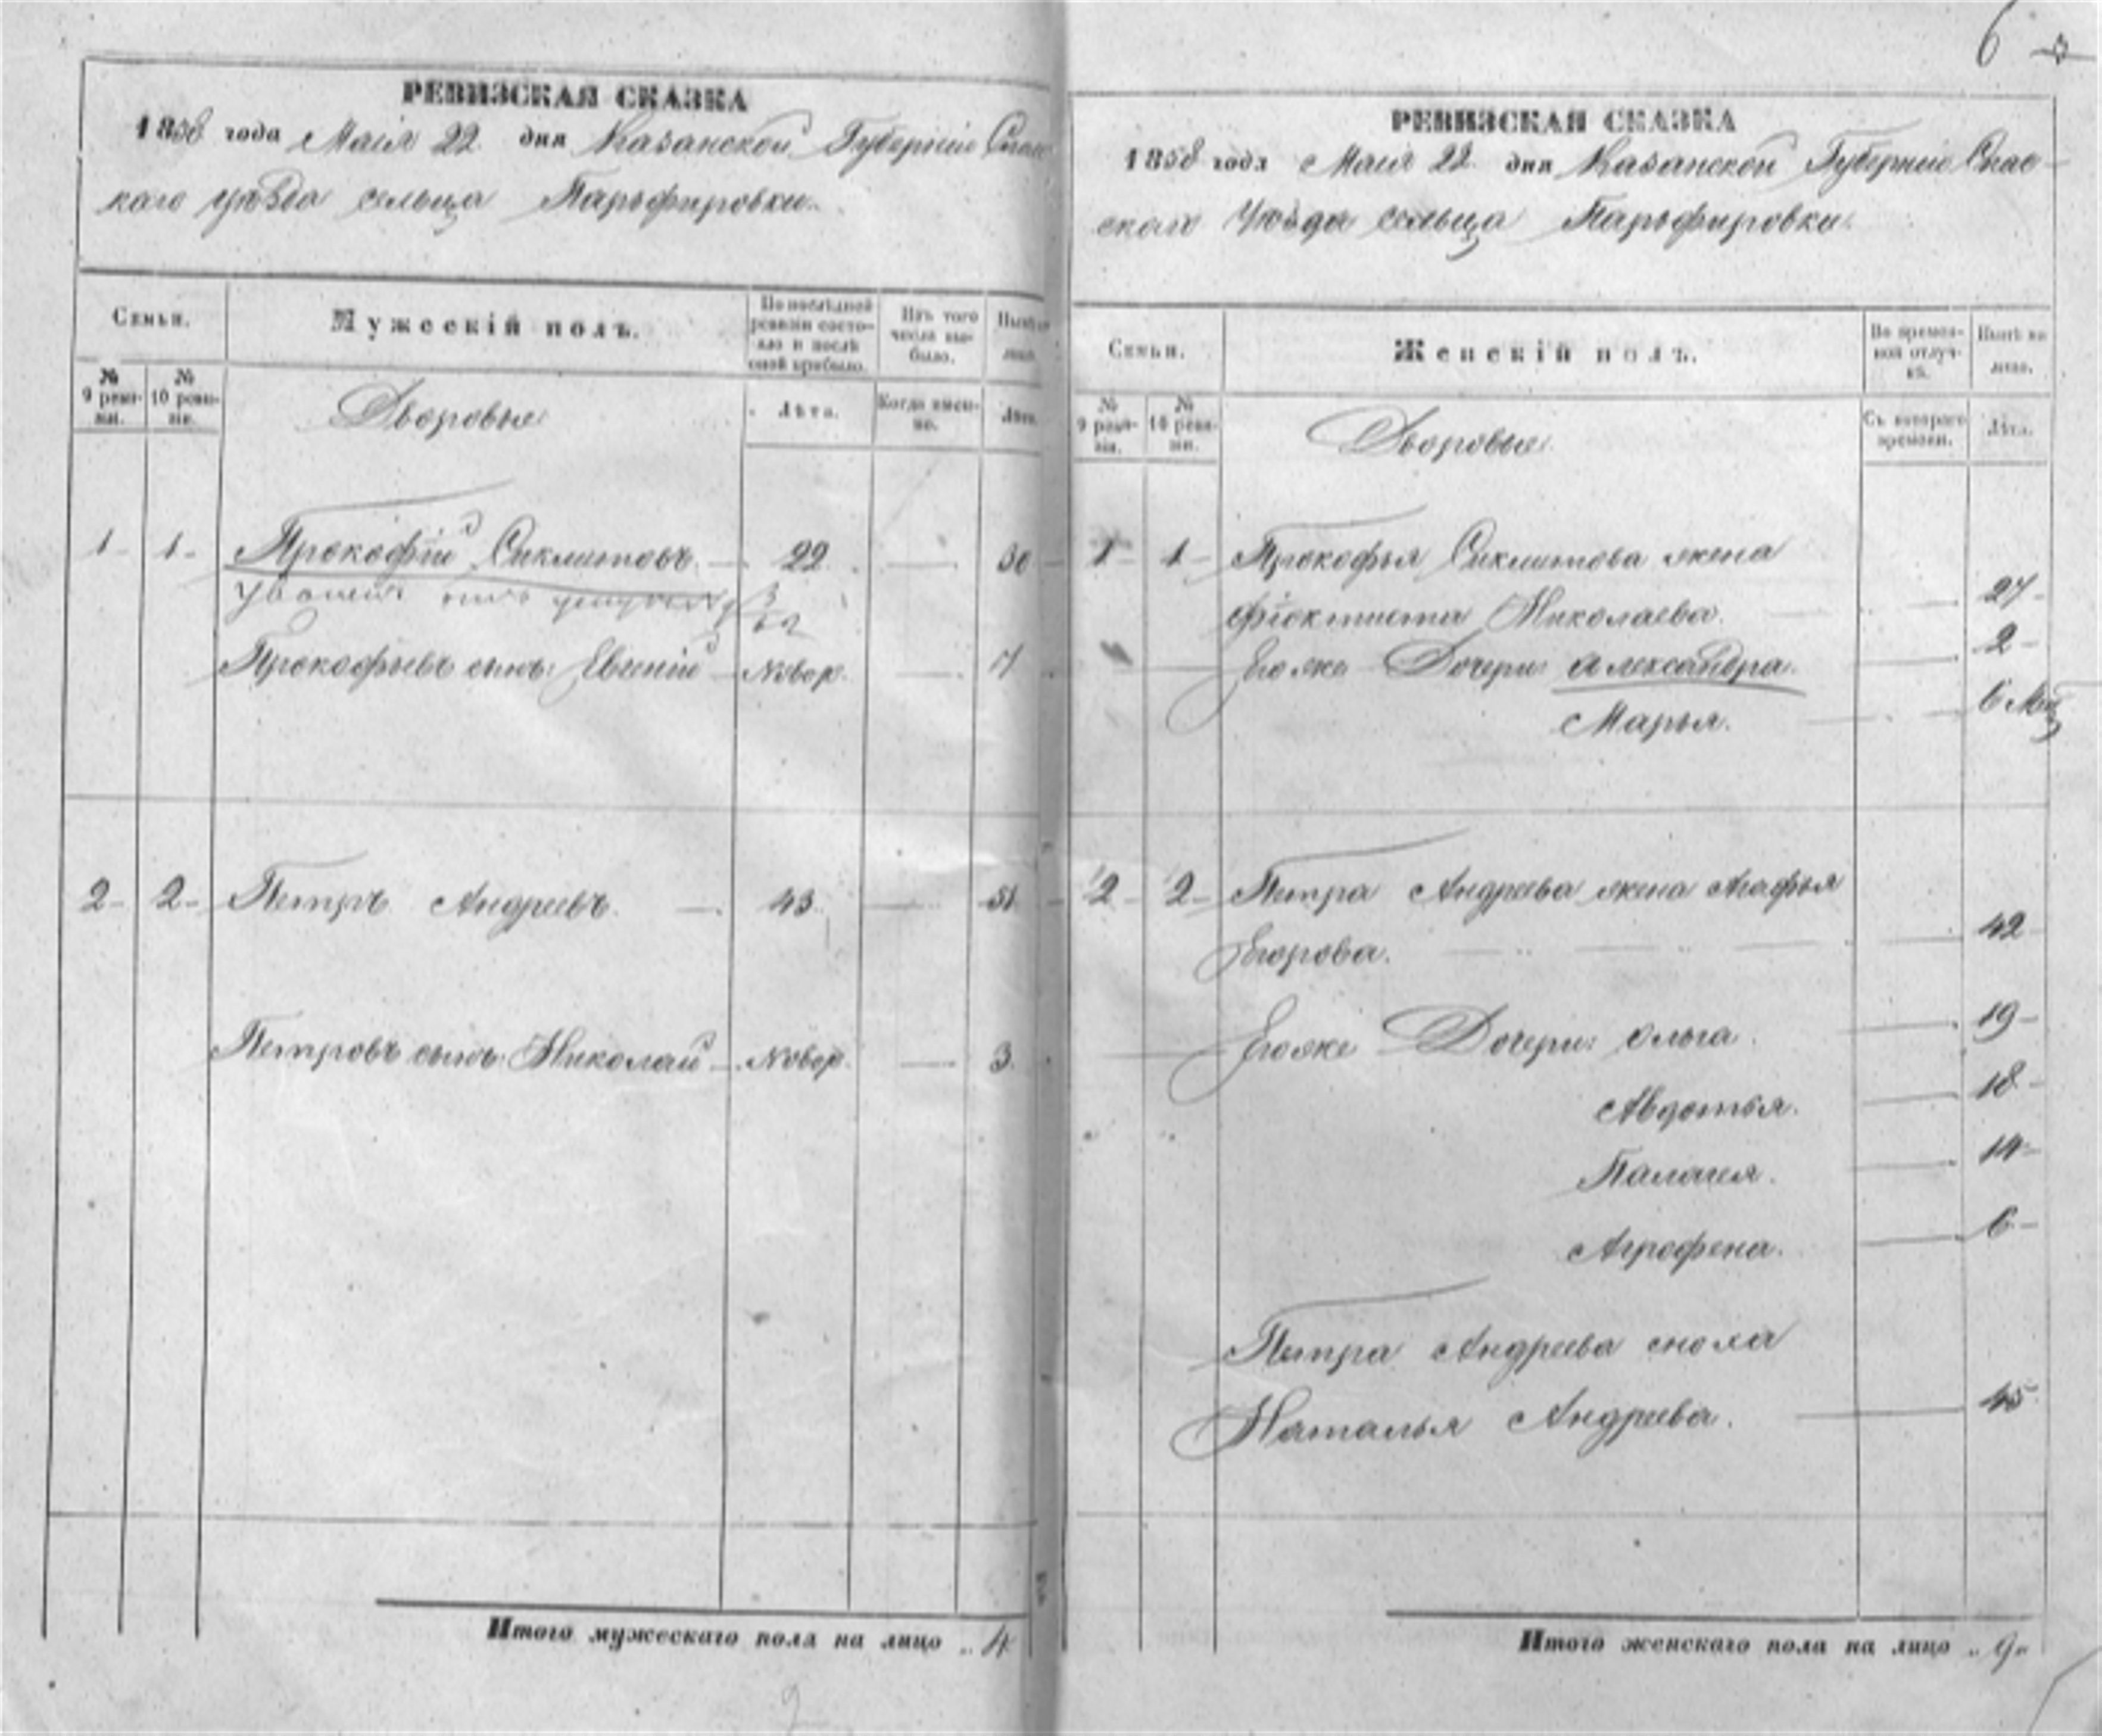 6
РЕВИЗСКАЯ СКАЗКА
1858 года Маія 22 дня Казанской Губерніи Спас
каго уѣзда сельца Парѳфировки.
Семьи.
Мужескій полъ.
По послѣдней ревизіи состояло и послѣ оной прибыло.
Изъ того числа выбыло.
Нынѣ на лицо.
№ 9 ревизіи.
№ 10 ревизіи.
Дворовые
Лѣта.
Когда именно.
Лѣта.
1 1 Прокофій 22 30
Прокофьевъ сынъ: Евгеній Новор. 7
2 2 Петръ Андреевъ. 43 51
Петровъ сынъ Николай Новор. 3
Итого мужескаго пола на лицо 4
РЕВИЗСКАЯ СКАЗКА
1858 года Маія 22 дня Казанской Губерніи Спас-
скаго Уѣзда сельца Парѳфировки.
Семьи.
Женскій полъ.
Во временной отлучкѣ.
Нынѣ на лицо.
№ 9 ревизіи.
№ 10 ревизіи.
Дворовые.
Съ котораго времени.
Лѣта.
1 1 Прокофья жена
Фіоктиста Николаева. 27
Егоже Дочери Александра. 2
Марья. 6 Мѣс
2 2 Петра Андреева жена Агафья
Егорова. 42
Егоже Дочери: Ольга. 19
Авдотья. 18
Палагея. 14
Агрофена. 6
Петра Андреева сноха
Наталья Андреева. 45
Итого женскаго пола на лицо 9